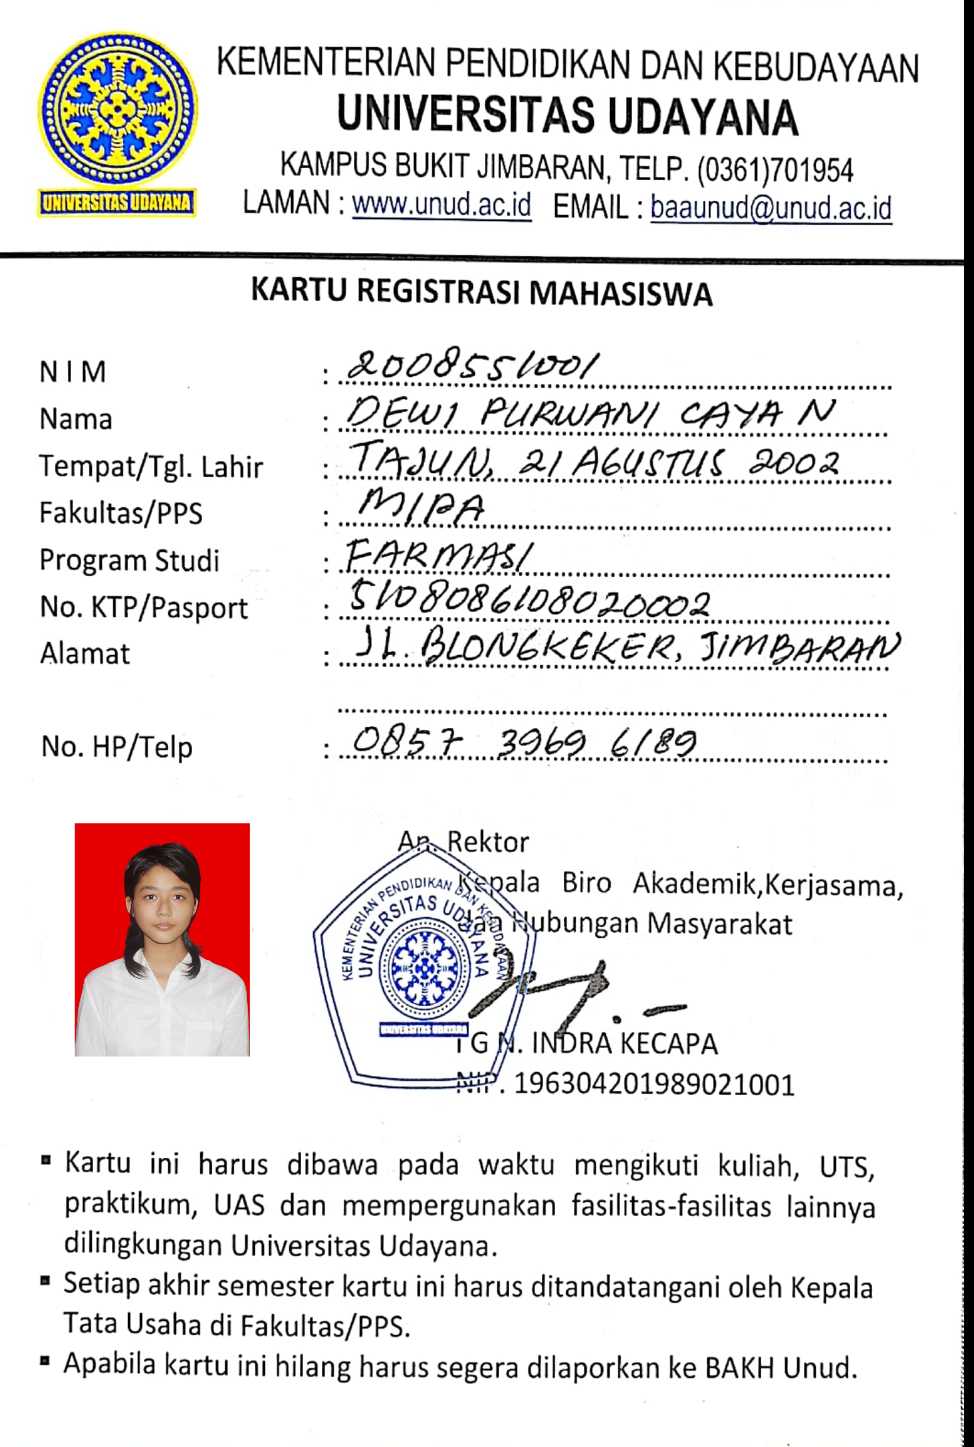 KEMENTERIAN PENDIDIKAN DAN KEBUDAYAAN
UNIVERSITAS UDAYANA
KAMPUS BUKIT JIMBARAN, TELP. (0361)701954
LAMAN : www.unud.ac.id EMAIL : baaunud@unud.ac.id
UNIVERSITAS UDAYANA
KARTU REGISTRASI MAHASISWA
N I M : 2008551001
Nama : DEWI PURWANI CAYA N
Tempat/Tgl. Lahir : TAJUN, 21 AGUSTUS 2002
Fakultas/PPS : MIPA
Program Studi : FARMASI
No. KTP/Pasport : 5108086108020002
Alamat : JL. BLONGKEKER, JIMBARAN
No. HP/Telp : 0857 3969 6189
An. Rektor
Kepala Biro Akademik,Kerjasama,
dan Hubungan Masyarakat
KEMENTERIAN PENDIDIKAN DAN KEBUDAYAAN
UNIVERSITAS UDAYANA
UNIVERSITAS UDAYANA
I G N. INDRA KECAPA
NIP. 196304201989021001
▪ Kartu ini harus dibawa pada waktu mengikuti kuliah, UTS,
praktikum, UAS dan mempergunakan fasilitas-fasilitas lainnya
dilingkungan Universitas Udayana.
▪ Setiap akhir semester kartu ini harus ditandatangani oleh Kepala
Tata Usaha di Fakultas/PPS.
▪ Apabila kartu ini hilang harus segera dilaporkan ke BAKH Unud.